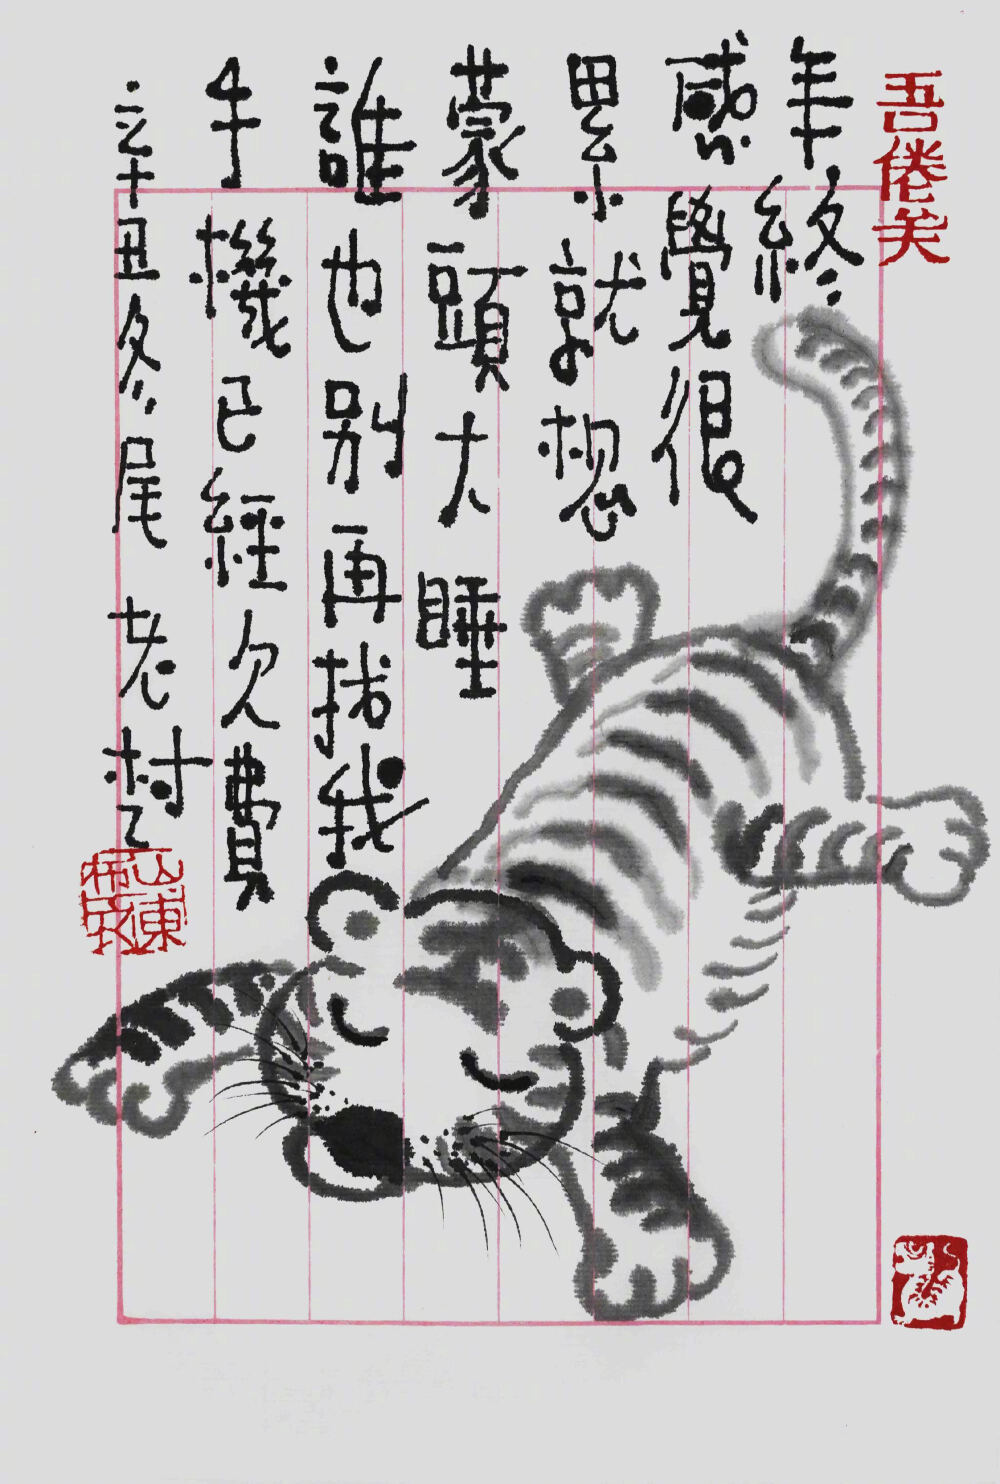 吾倦矣
年終
感覺很
累就想
蒙頭大睡
誰也別再找我
手機已經欠費
辛丑冬尾老村
山東